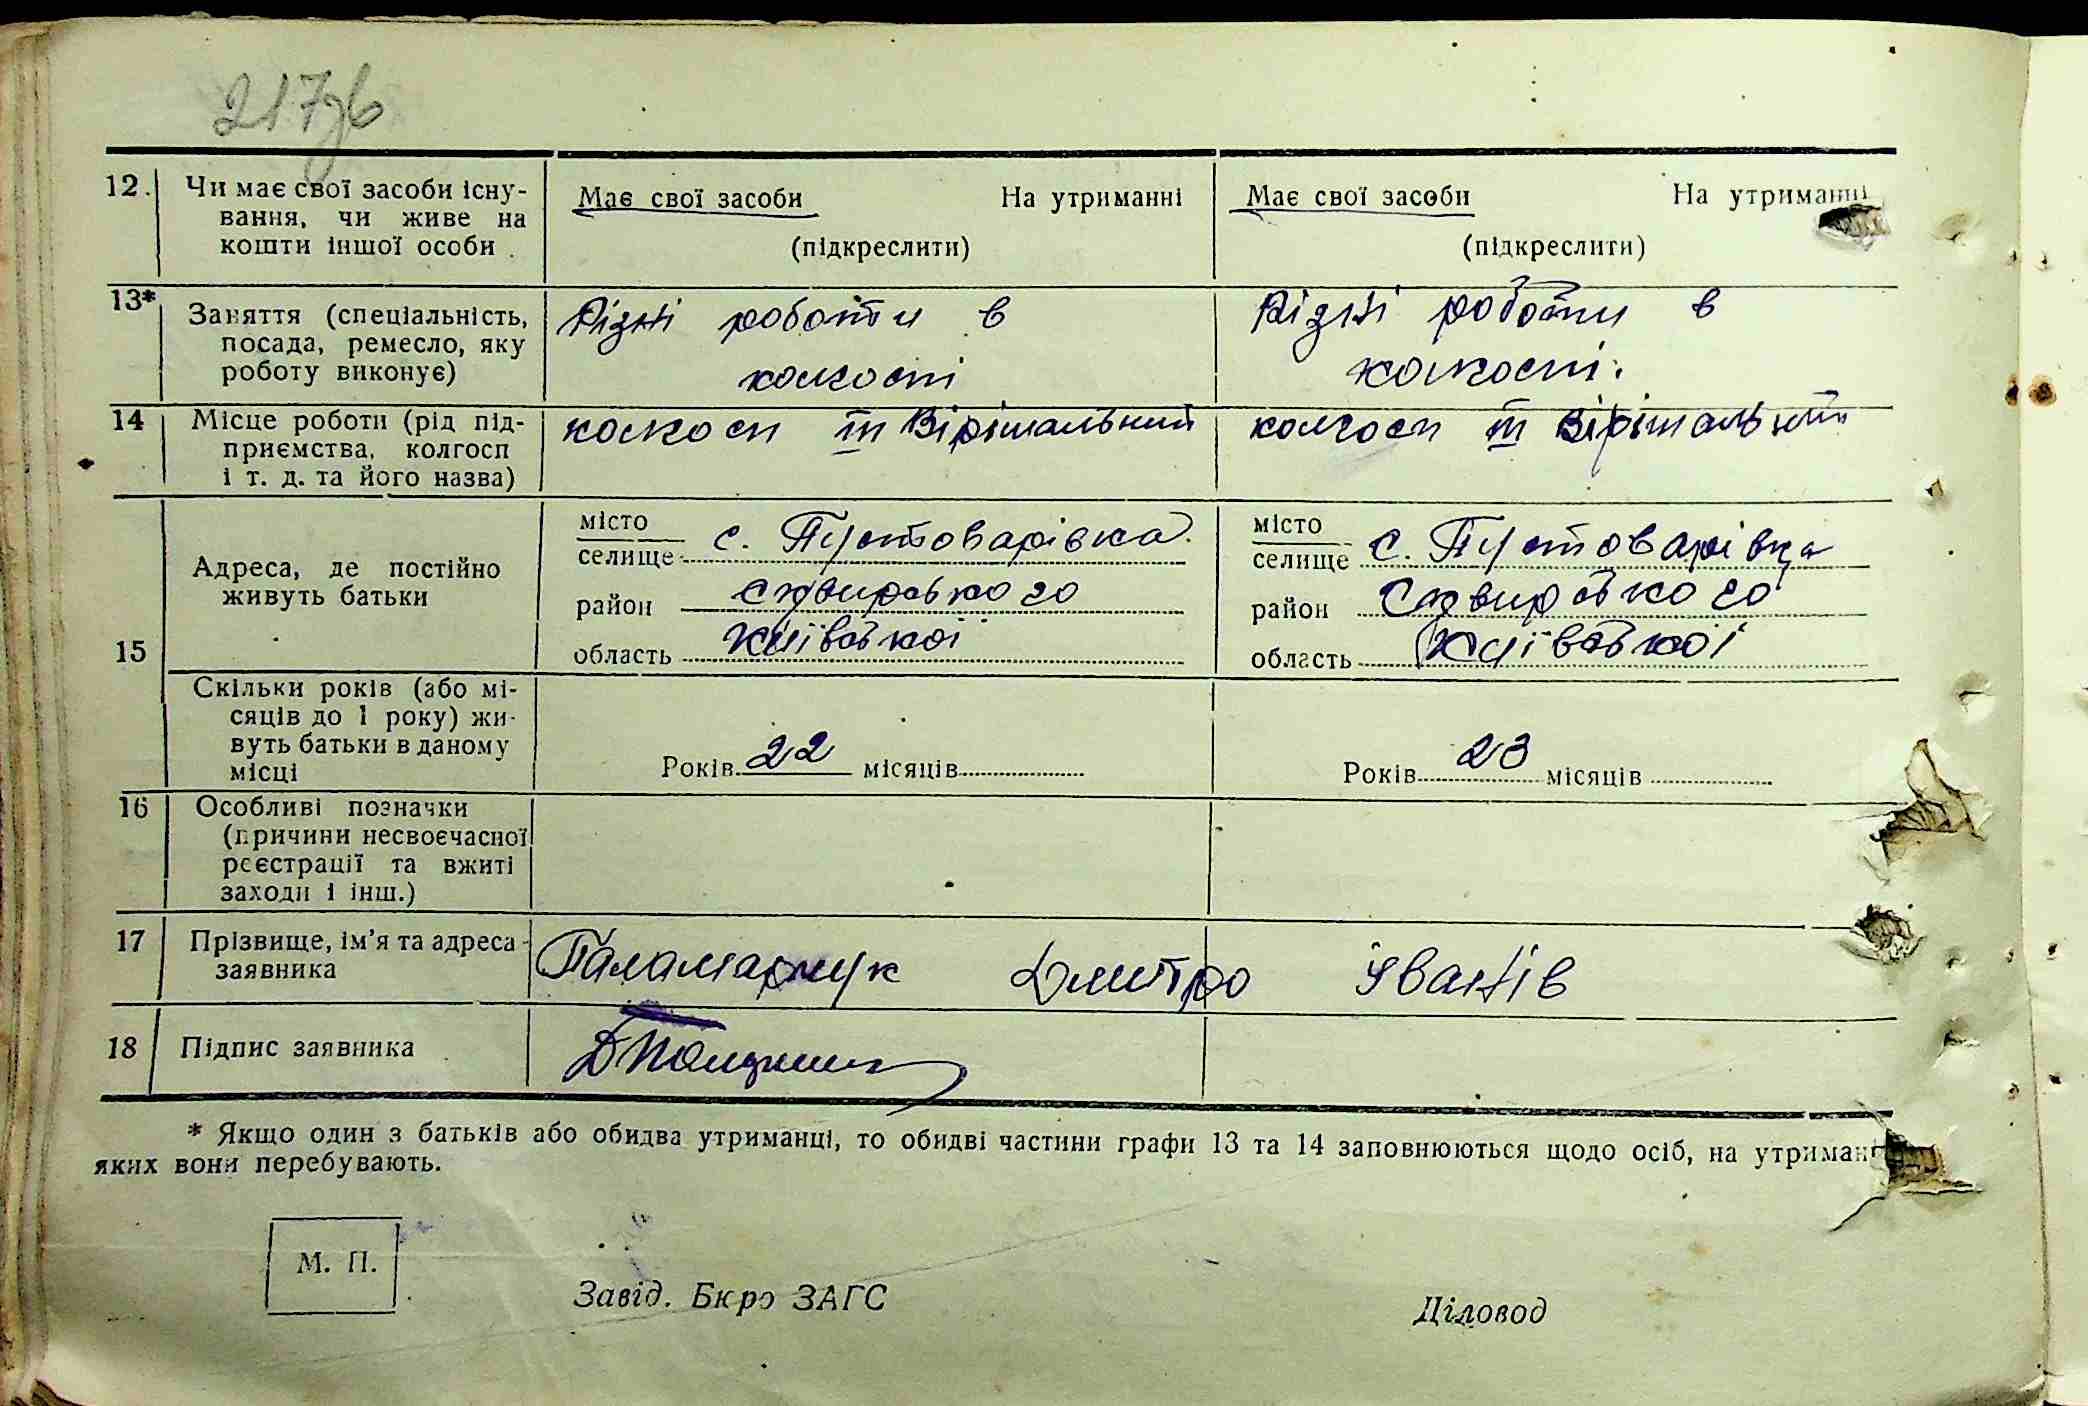 217зб
12. Чи має свої засоби існу- Має свої засоби На утриманні Має свої засоби На утриманні
вання, чи живе на
кошти іншої особи (підкреслити) (підкреслити)
13* Заняття (спеціальність, Різні роботи в Різні роботи в
посада, ремесло, яку
роботу виконує) колгоспі колгоспі.
14 Місце роботи (рід під- колгосп ІІІ Вірішальний колгосп ІІІ Вірішальний
приємства, колгосп
і т. д. та його назва)
місто місто
селище с. Пустоварівка селище с. Пустоварівка
Адреса, де постійно
живуть батьки район сквирського район Сквирського
15 область Київської область Київської
Скільки років (або мі-
сяців до 1 року) жи-
вуть батьки в даному
місці Років 22 місяців Років 23 місяців
16 Особливі позначки
(причини несвоєчасної
реєстрації та вжиті
заходи і інш.)
17 Прізвище, ім'я та адреса Паламарчук Дмитро Іванів
заявника
18 Підпис заявника
* Якщо один з батьків або обидва утриманці, то обидві частини графи 13 та 14 заповнюються щодо осіб, на утриманні
яких вони перебувають.
М. П.
Завід. Бюро ЗАГС Діловод